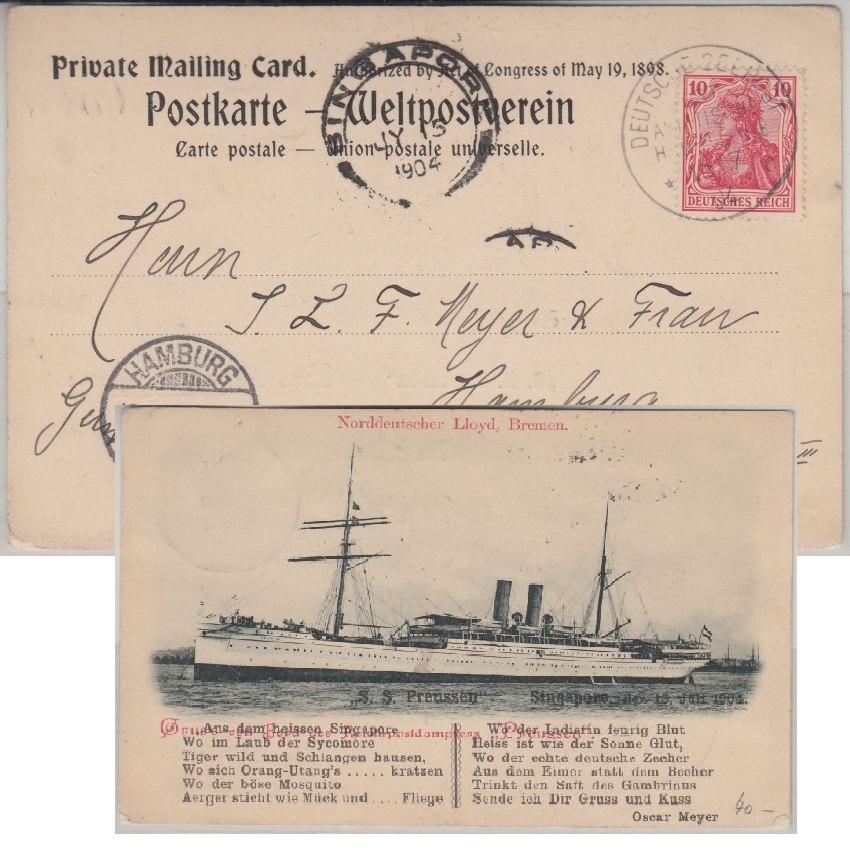 Private Mailing Card. Authorized by Act of Congress of May 19, 1898.
Postkarte – Weltpostverein
Carte postale – Union postale universelle.
SINGAPORE
JY 15
1904
DEUTSCHE SEEPOST
10 10
DEUTSCHES REICH
Herrn
S L. F. Meyer & Frau
Hamburg
HAMBURG
III
Norddeutscher Lloyd, Bremen.
„S. S. Preussen" Singapore, den 15. Juli 1904.
Gruss von Bord des Reichspostdampfers „Preussen"
Aus dem heissen Singapore
Wo im Laub der Sycomore
Tiger wild und Schlangen hausen,
Wo sich Orang-Utang's ..... kratzen
Wo der böse Mosquito
Aerger sticht wie Mück und .... Fliege
Wo der Indierin feurig Blut
Heiss ist wie der Sonne Glut,
Wo der echte deutsche Zecher
Aus dem Eimer statt dem Becher
Trinkt den Saft des Gambrinus
Sende ich Dir Gruss und Kuss
Oscar Meyer
40.–